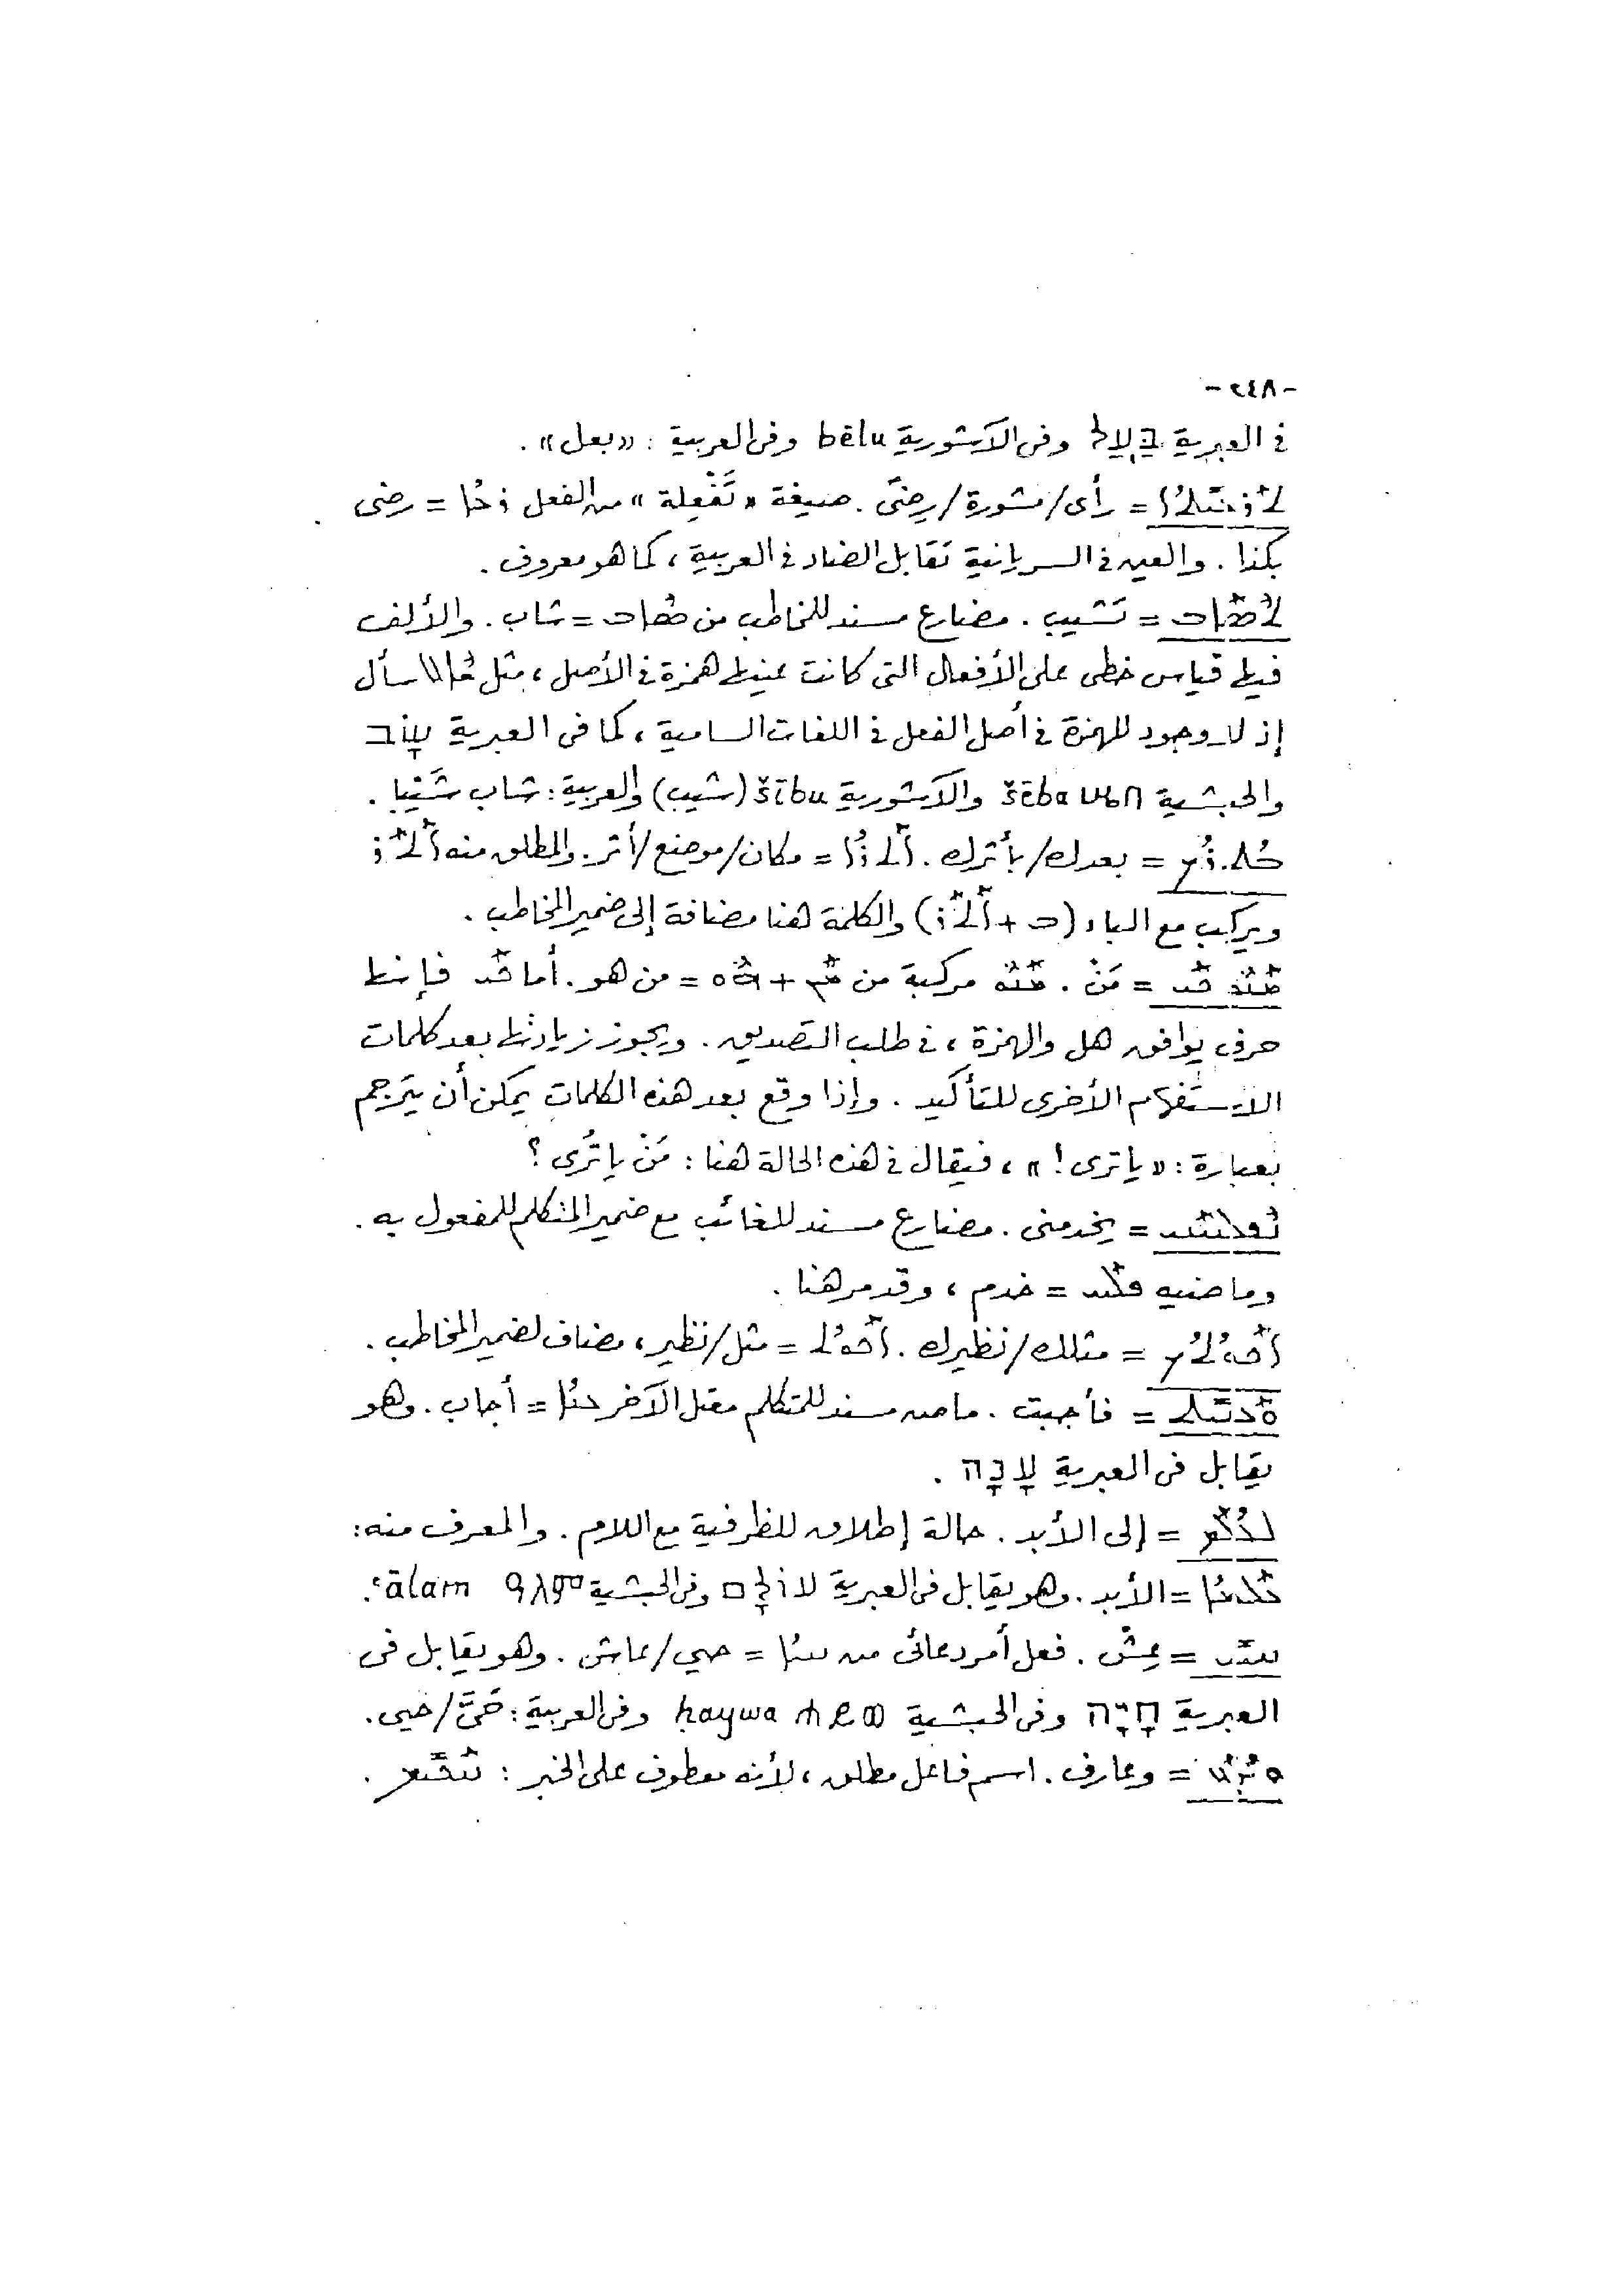 - ٢٤٨ -
في العبرية בַּעַל وفى الآشورية bēlu وفى العربية : «بعل» .
ܬܪܥܝܬܐ = رأى/مشورة/رِضىً . صيغة «تَفْعِلة» من الفعل ܪܥܐ = رضى
بكذا . والعين في السريانية تقابل الضاد في العربية ، كما هو معروف .
ܬܣܐܒ = تشيب . مضارع مسند للمخاطب من ܣܐܒ = شاب . والألف
فيها قياس خطى على الأفعال التى كانت عينها همزة في الأصل ، مثل ܫܐܠ سأل
إذ لا وجود للهمزة في أصل الفعل في اللغات السامية ، كما فى العبرية שִׂיב
والحبشية ሤበ šēba والآشورية šību (شيب) والعربية : شاب شَيْبا .
ܒܬܪܟ = بعدك/بأثرك . ܐܬܪܐ = مكان/موضع/أثر . والمطلق منه ܐܬܪ
ويركب مع الباء (ܒ + ܐܬܪ) والكلمة هنا مضافة إلى ضمير المخاطب .
ܡܢܘ ܟܝ = مَنْ . ܡܢܘ مركبة من ܡܢ + ܗܘ = من هو . أما ܟܝ فإنها
حرف يوافق هل والهمزة ، في طلب التصديق . ويجوز زيادتها بعد كلمات
الاستفهام الأخرى للتأكيد . وإذا وقع بعد هذه الكلمات يمكن أن يترجم
بعبارة : «ياترى !» ، فيقال في هذه الحالة هنا : مَنْ ياتُرى ؟
ܢܦܠܚܢܝ = يخدمنى . مضارع مسند للغائب مع ضمير المتكلم للمفعول به .
وماضيه ܦܠܚ = خدم ، وقد مر هنا .
ܐܟܘܬܟ = مثلك/نظيرك . ܐܟܘܬ = مثل/نظير ، مضاف لضمير المخاطب .
ܘܥܢܝܬ = فأجبت . ماض مسند للمتكلم معتل الآخر ܥܢܐ = أجاب . وهو
يقابل فى العبرية עָנָה .
ܠܥܠܡ = إلى الأبد . حالة إطلاق للظرفية مع اللام . والمعرف منه :
ܥܠܡܐ = الأبد . وهو يقابل فى العبرية עוֹלָם وفى الحبشية ዓለም ʿālam .
ܚܝܝ = عِشْ . فعل أمر دعائى من ܚܝܐ = حيي/عاش . وهو يقابل فى
العبرية חָיָה وفى الحبشية ሐይወ ḥaywa وفى العربية : حَيَّ/حيى .
ܘܝܕܥ = وعارف . اسم فاعل مطلق ، لأنه معطوف على الخبر : ܚܟܝܡ .